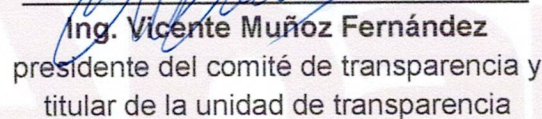 Ing. Vicente Muñoz Fernández
presidente del comité de transparencia y
titular de la unidad de transparencia